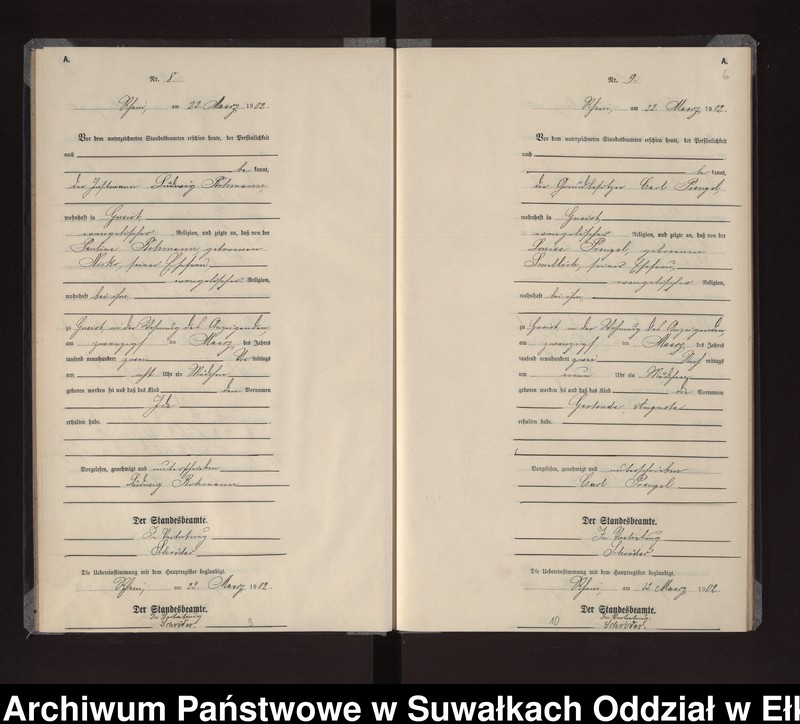 A.
Nr. 8.
am 22. Maerz 1902.
Vor dem unterzeichneten Standesbeamten erschien heute, der Persönlichkeit
nach
be kannt,
der Ludwig Rohmann
wohnhaft in
evangelischer Religion, und zeigte an, daß von der
Pauline Rohmann geborenen
seiner Ehefrau
evangelischer Religion,
wohnhaft bei ihm,
zu in der Wohnung des Anzeigenden
am zwanzigsten Maerz des Jahres
tausend neunhundert zwei Vor mittags
um acht Uhr ein Mädchen
geboren worden sei und daß das Kind den Vornamen
Ida
erhalten habe.
Vorgelesen, genehmigt und unterschrieben
Ludwig Rohmann
Der Standesbeamte.
In Vertretung
Schröder
Die Uebereinstimmung mit dem Hauptregister beglaubigt.
am 22. Maerz 1902.
Der Standesbeamte.
In Vertretung
Schröder.
A.
6
Nr. 9.
am 22. Maerz 1902.
Vor dem unterzeichneten Standesbeamten erschien heute, der Persönlichkeit
nach
be kannt,
der Grundbesitzer Carl Prengel,
wohnhaft in
evangelischer Religion, und zeigte an, daß von der
Louise Prengel, geborenen
seiner Ehefrau,
evangelischer Religion,
wohnhaft bei ihm,
zu in der Wohnung des Anzeigenden
am zwanzigsten Maerz des Jahres
tausend neunhundert zwei Nach mittags
um neun Uhr ein Mädchen
geboren worden sei und daß das Kind die Vornamen
Gertrude Auguste
erhalten habe.
Vorgelesen, genehmigt und unterschrieben
Carl Prengel
Der Standesbeamte.
In Vertretung
Schröder
Die Uebereinstimmung mit dem Hauptregister beglaubigt.
am 22 Maerz 1902.
Der Standesbeamte.
10
In Vertretung
Schröder.
Archiwum Państwowe w Suwałkach Oddział w Eł